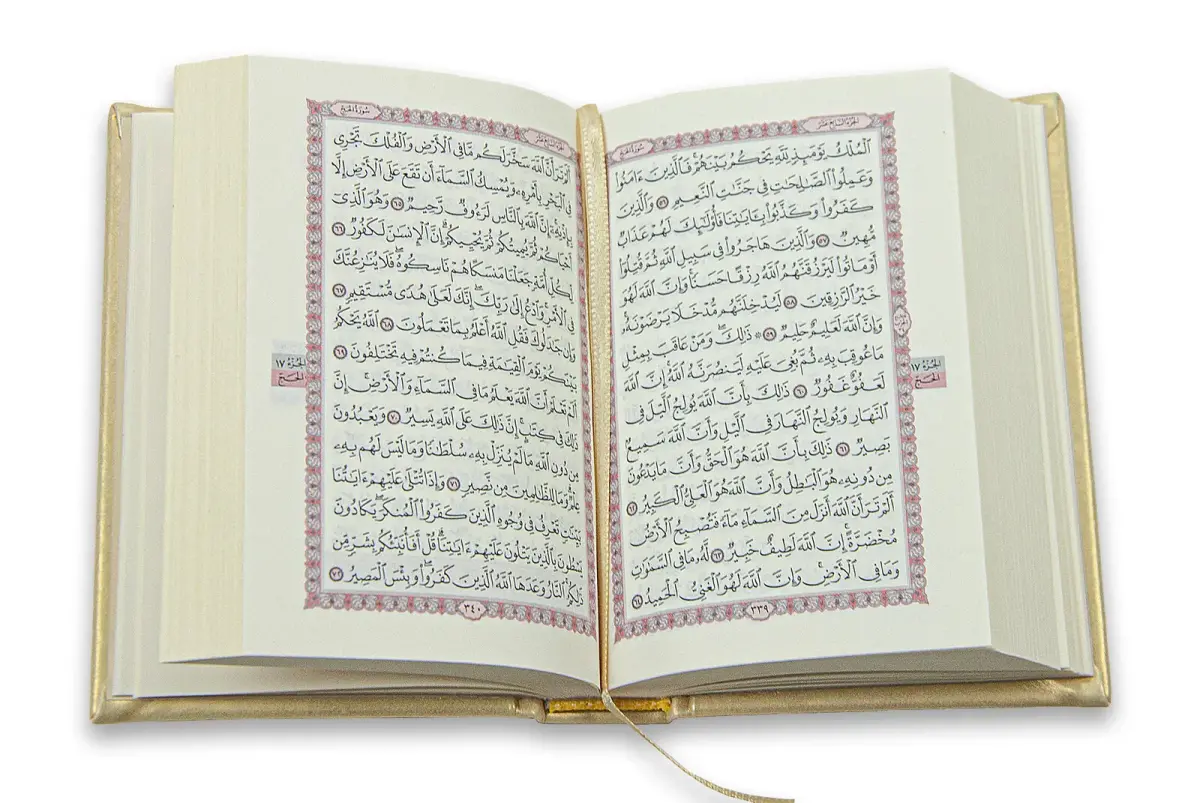 الجزء السابع عشر
سورة الحج
ٱلْمُلْكُ يَوْمَئِذٍ لِّلَّهِ يَحْكُمُ بَيْنَهُمْ ۚ فَٱلَّذِينَ ءَامَنُوا۟
وَعَمِلُوا۟ ٱلصَّٰلِحَٰتِ فِى جَنَّٰتِ ٱلنَّعِيمِ ٥٦ وَٱلَّذِينَ
كَفَرُوا۟ وَكَذَّبُوا۟ بِـَٔايَٰتِنَا فَأُو۟لَٰٓئِكَ لَهُمْ عَذَابٌ
مُّهِينٌ ٥٧ وَٱلَّذِينَ هَاجَرُوا۟ فِى سَبِيلِ ٱللَّهِ ثُمَّ قُتِلُوٓا۟
أَوْ مَاتُوا۟ لَيَرْزُقَنَّهُمُ ٱللَّهُ رِزْقًا حَسَنًا ۚ وَإِنَّ ٱللَّهَ لَهُوَ
خَيْرُ ٱلرَّٰزِقِينَ ٥٨ لَيُدْخِلَنَّهُم مُّدْخَلًا يَرْضَوْنَهُۥ ۗ
وَإِنَّ ٱللَّهَ لَعَلِيمٌ حَلِيمٌ ٥٩ ۞ ذَٰلِكَ وَمَنْ عَاقَبَ بِمِثْلِ
مَا عُوقِبَ بِهِۦ ثُمَّ بُغِىَ عَلَيْهِ لَيَنصُرَنَّهُ ٱللَّهُ ۗ إِنَّ ٱللَّهَ
لَعَفُوٌّ غَفُورٌ ٦٠ ذَٰلِكَ بِأَنَّ ٱللَّهَ يُولِجُ ٱلَّيْلَ فِى
ٱلنَّهَارِ وَيُولِجُ ٱلنَّهَارَ فِى ٱلَّيْلِ وَأَنَّ ٱللَّهَ سَمِيعٌۢ
بَصِيرٌ ٦١ ذَٰلِكَ بِأَنَّ ٱللَّهَ هُوَ ٱلْحَقُّ وَأَنَّ مَا يَدْعُونَ
مِن دُونِهِۦ هُوَ ٱلْبَٰطِلُ وَأَنَّ ٱللَّهَ هُوَ ٱلْعَلِىُّ ٱلْكَبِيرُ ٦٢
أَلَمْ تَرَ أَنَّ ٱللَّهَ أَنزَلَ مِنَ ٱلسَّمَآءِ مَآءً فَتُصْبِحُ ٱلْأَرْضُ
مُخْضَرَّةً ۗ إِنَّ ٱللَّهَ لَطِيفٌ خَبِيرٌ ٦٣ لَّهُۥ مَا فِى ٱلسَّمَٰوَٰتِ
وَمَا فِى ٱلْأَرْضِ ۗ وَإِنَّ ٱللَّهَ لَهُوَ ٱلْغَنِىُّ ٱلْحَمِيدُ ٦٤
٣٣٩
الجزء ١٧
الحج
الجزء السابع عشر
سورة الحج
أَلَمْ تَرَ أَنَّ ٱللَّهَ سَخَّرَ لَكُم مَّا فِى ٱلْأَرْضِ وَٱلْفُلْكَ تَجْرِى
فِى ٱلْبَحْرِ بِأَمْرِهِۦ وَيُمْسِكُ ٱلسَّمَآءَ أَن تَقَعَ عَلَى ٱلْأَرْضِ إِلَّا
بِإِذْنِهِۦٓ ۗ إِنَّ ٱللَّهَ بِٱلنَّاسِ لَرَءُوفٌ رَّحِيمٌ ٦٥ وَهُوَ ٱلَّذِىٓ
أَحْيَاكُمْ ثُمَّ يُمِيتُكُمْ ثُمَّ يُحْيِيكُمْ ۗ إِنَّ ٱلْإِنسَٰنَ لَكَفُورٌ ٦٦
لِّكُلِّ أُمَّةٍ جَعَلْنَا مَنسَكًا هُمْ نَاسِكُوهُ ۖ فَلَا يُنَٰزِعُنَّكَ
فِى ٱلْأَمْرِ ۚ وَٱدْعُ إِلَىٰ رَبِّكَ ۖ إِنَّكَ لَعَلَىٰ هُدًى مُّسْتَقِيمٍ ٦٧
وَإِن جَٰدَلُوكَ فَقُلِ ٱللَّهُ أَعْلَمُ بِمَا تَعْمَلُونَ ٦٨ ٱللَّهُ يَحْكُمُ
بَيْنَكُمْ يَوْمَ ٱلْقِيَٰمَةِ فِيمَا كُنتُمْ فِيهِ تَخْتَلِفُونَ ٦٩
أَلَمْ تَعْلَمْ أَنَّ ٱللَّهَ يَعْلَمُ مَا فِى ٱلسَّمَآءِ وَٱلْأَرْضِ ۗ إِنَّ
ذَٰلِكَ فِى كِتَٰبٍ ۚ إِنَّ ذَٰلِكَ عَلَى ٱللَّهِ يَسِيرٌ ٧٠ وَيَعْبُدُونَ
مِن دُونِ ٱللَّهِ مَا لَمْ يُنَزِّلْ بِهِۦ سُلْطَٰنًا وَمَا لَيْسَ لَهُم بِهِۦ
عِلْمٌ ۗ وَمَا لِلظَّٰلِمِينَ مِن نَّصِيرٍ ٧١ وَإِذَا تُتْلَىٰ عَلَيْهِمْ ءَايَٰتُنَا
بَيِّنَٰتٍ تَعْرِفُ فِى وُجُوهِ ٱلَّذِينَ كَفَرُوا۟ ٱلْمُنكَرَ ۖ يَكَادُونَ
يَسْطُونَ بِٱلَّذِينَ يَتْلُونَ عَلَيْهِمْ ءَايَٰتِنَا ۗ قُلْ أَفَأُنَبِّئُكُم بِشَرٍّ مِّن
ذَٰلِكُمُ ۗ ٱلنَّارُ وَعَدَهَا ٱللَّهُ ٱلَّذِينَ كَفَرُوا۟ ۖ وَبِئْسَ ٱلْمَصِيرُ ٧٢
٣٤٠
الجزء ١٧
الحج